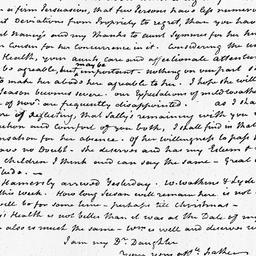 a firm Persuasion, that few Persons have less numerous
Deviations from Propriety to regret, than you have
Nancy's and my Thanks to aunt Symmes for her
Cousin for her concurrence in it. Considering the
Health, your aunts care and affectionate attention
may be
be agreable, but important - nothing on our part
to make her abode here agreable to her. I hope she will
Season becomes severe. our Expectations of mild weather
of Novr. are frequently disappointed. as I sha
of reflecting, that Sally's remaining with you
and Comfort of you both, I shall find in that
for her absence. of her willingness to
no Doubt. she deserves and has my Esteem &
children I think and can say the same - great
Hamersly arrived Yesterday. W. Watkins & Lyde
this week. How long Susan will remain here is not
will be for some time - perhaps till Christmas -
's Health is not better than it was at the Date of my
also is much the same - Wm. is well and deserves
I am my Dr. Daughter
your very affte. Father